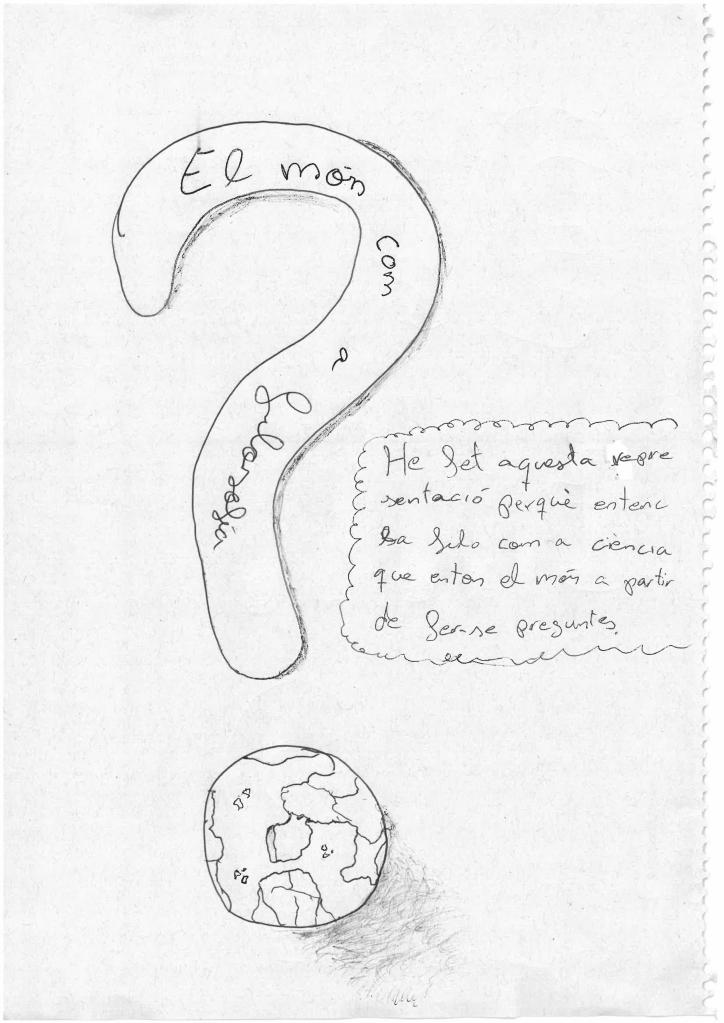 El món com a filosofia
He fet aquesta repre
sentació perquè entenc
la filo com a ciència
que entén el món a partir
de fer-se preguntes.